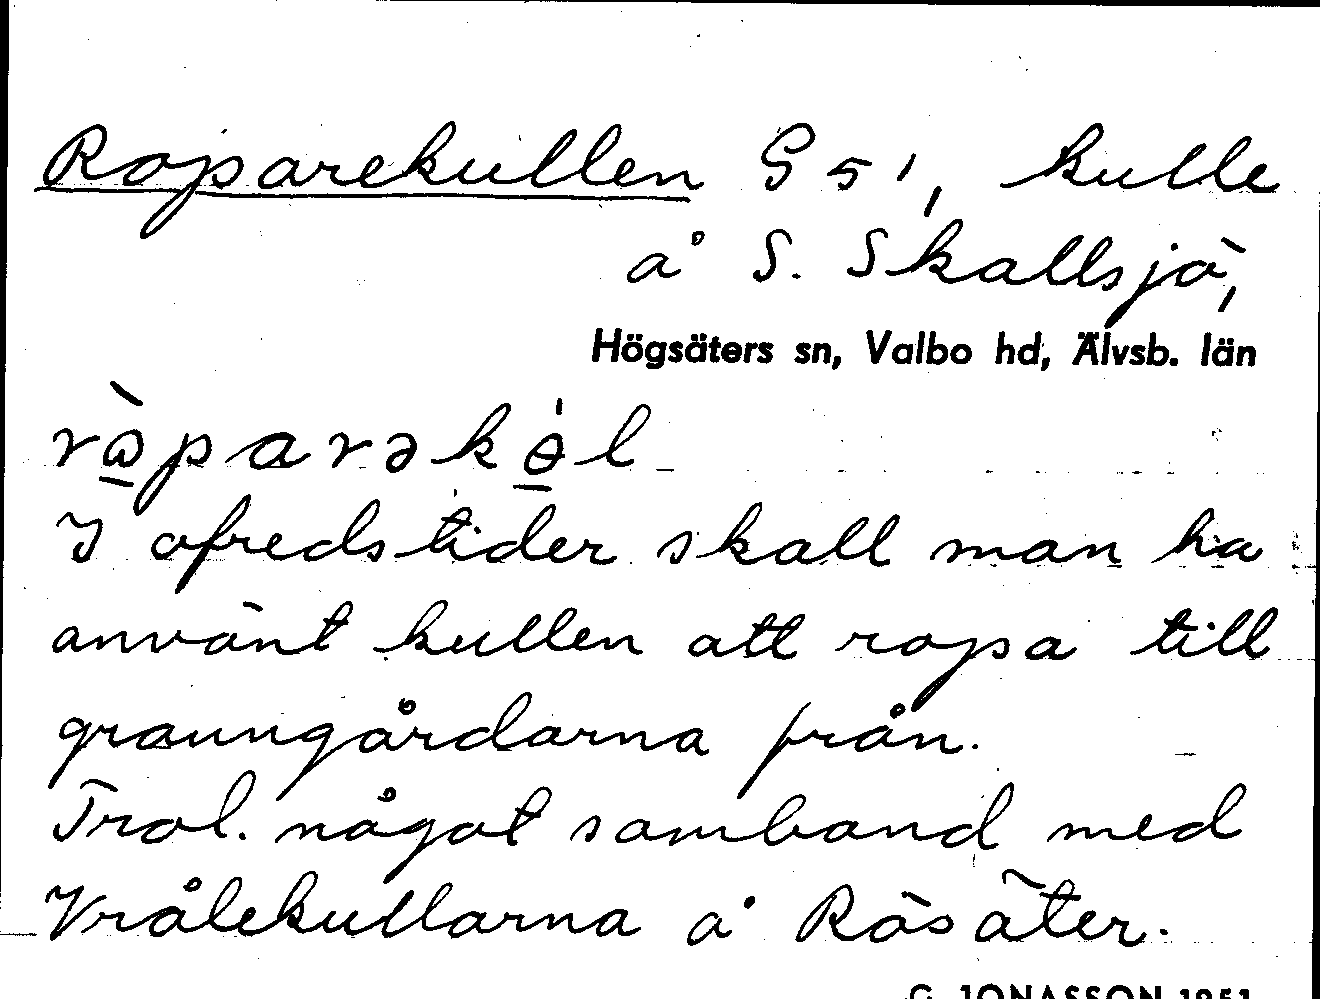 Roparekullen G 5 1, kulle
å S. Skallsjö,
Högsäters sn, Valbo hd, Älvsb. län
I ofredstider skall man ha
använt kullen att ropa till
granngårdarna från.
Trol. något samband med
Vrålekullarna å Råsäter.
G. JONASSON 1951